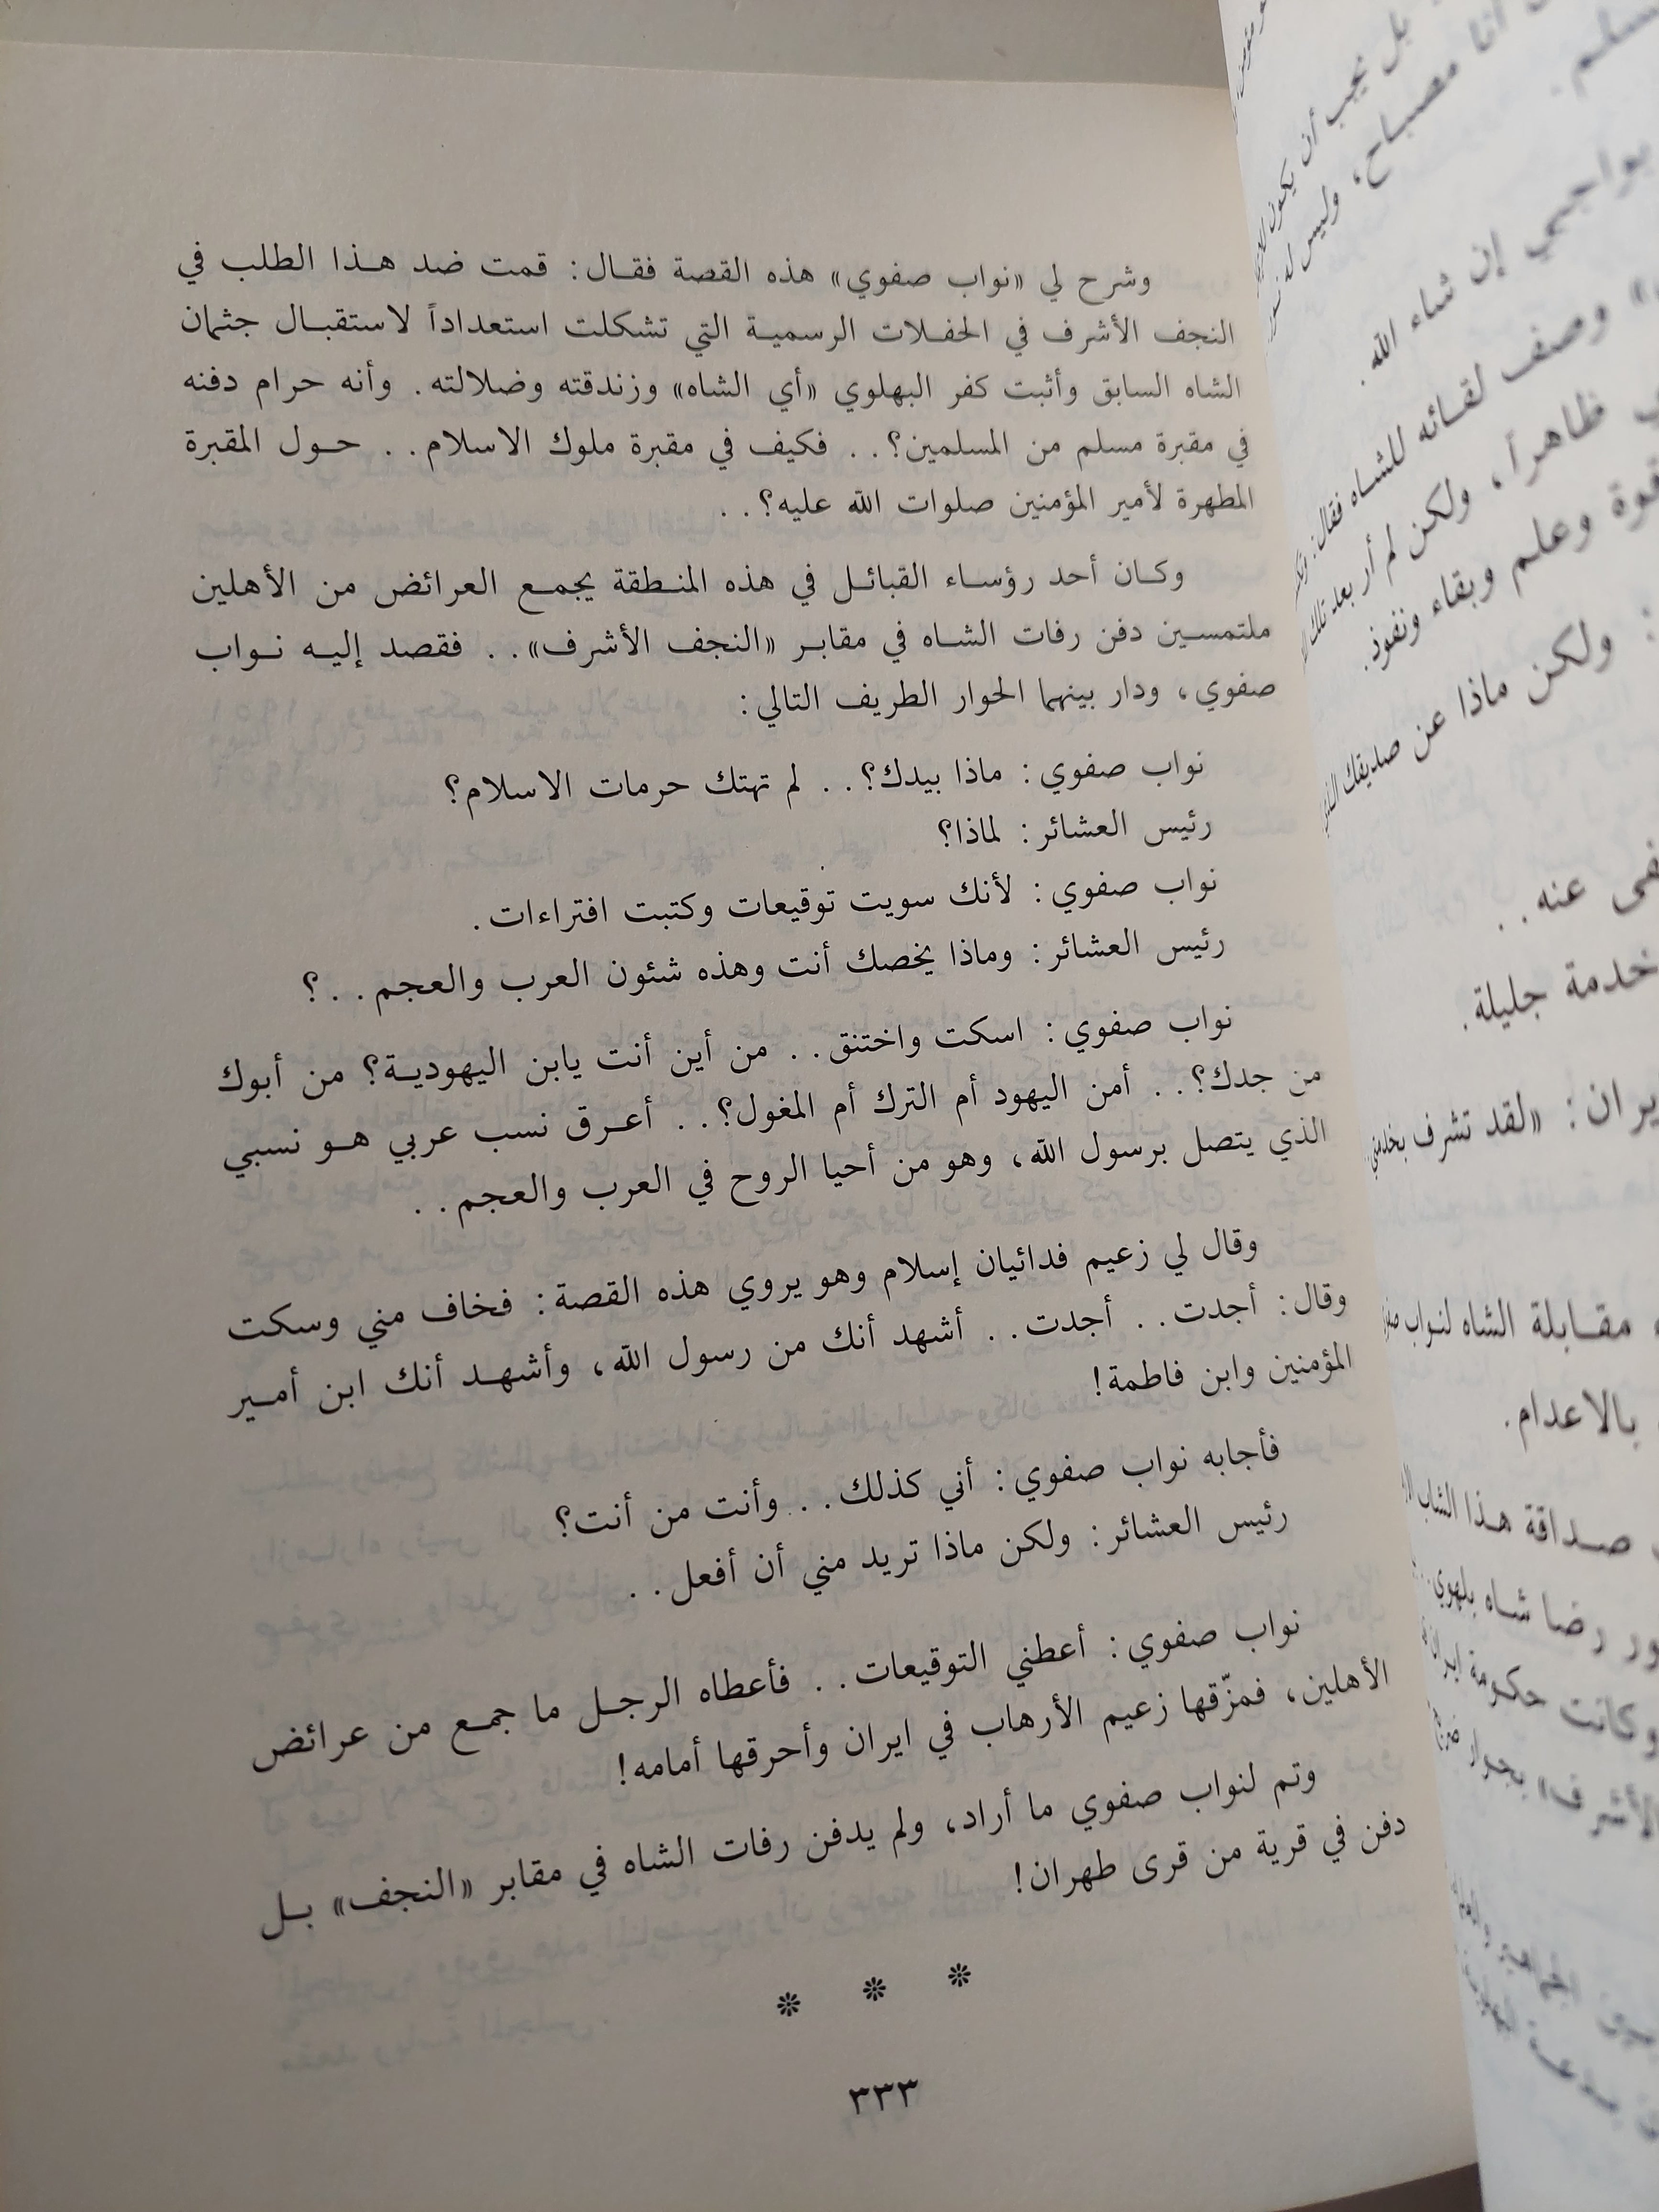 وشرح لي «نواب صفوي» هذه القصة فقال: قمت ضد هذا الطلب في
النجف الأشرف في الحفلات الرسمية التي تشكلت استعداداً لاستقبال جثمان
الشاه السابق وأثبت كفر البهلوي «أي الشاه» وزندقته وضلالته. وأنه حرام دفنه
في مقبرة مسلم من المسلمين؟.. فكيف في مقبرة ملوك الاسلام.. حول المقبرة
المطهرة لأمير المؤمنين صلوات الله عليه؟..
وكان أحد رؤساء القبائل في هذه المنطقة يجمع العرائض من الأهلين
ملتمسين دفن رفات الشاه في مقابر «النجف الأشرف».. فقصد إليه نواب
صفوي، ودار بينهما الحوار الطريف التالي:
نواب صفوي: ماذا بيدك؟.. لم تهتك حرمات الاسلام؟
رئيس العشائر: لماذا؟
نواب صفوي: لأنك سويت توقيعات وكتبت افتراءات.
رئيس العشائر: وماذا يخصك أنت وهذه شئون العرب والعجم..؟
نواب صفوي: اسكت واختنق.. من أين أنت يابن اليهودية؟ من أبوك
من جدك؟.. أمن اليهود أم الترك أم المغول؟.. أعرق نسب عربي هو نسبي
الذي يتصل برسول الله، وهو من أحيا الروح في العرب والعجم..
وقال لي زعيم فدائيان إسلام وهو يروي هذه القصة: فخاف مني وسكت
وقال: أجدت.. أجدت.. أشهد أنك من رسول الله، وأشهد أنك ابن أمير
المؤمنين وابن فاطمة!
فأجابه نواب صفوي: أني كذلك.. وأنت من أنت؟
رئيس العشائر: ولكن ماذا تريد مني أن أفعل..
نواب صفوي: أعطني التوقيعات.. فأعطاه الرجل ما جمع من عرائض
الأهلين، فمزّقها زعيم الأرهاب في ايران وأحرقها أمامه!
وتم لنواب صفوي ما أراد، ولم يدفن رفات الشاه في مقابر «النجف» بل
دفن في قرية من قرى طهران!
٣٣٣
بل يجب أن يكون
أنا مصباح، وليس له
بواجبي إن شاء الله.
وصف لقائه للشاه فقال:
ظاهراً، ولكن لم أر بعد تلك
قوة وعلم وبقاء ونفوذ.
: ولكن ماذا عن صديقك
عنه..
خدمة جليلة.
يران: «لقد تشرف
مقابلة الشاه لنواب
بالاعدام.
صداقة هذا الشاب
رضا شاه بهلوي..
وكانت حكومة ايران
الأشرف» بجوار